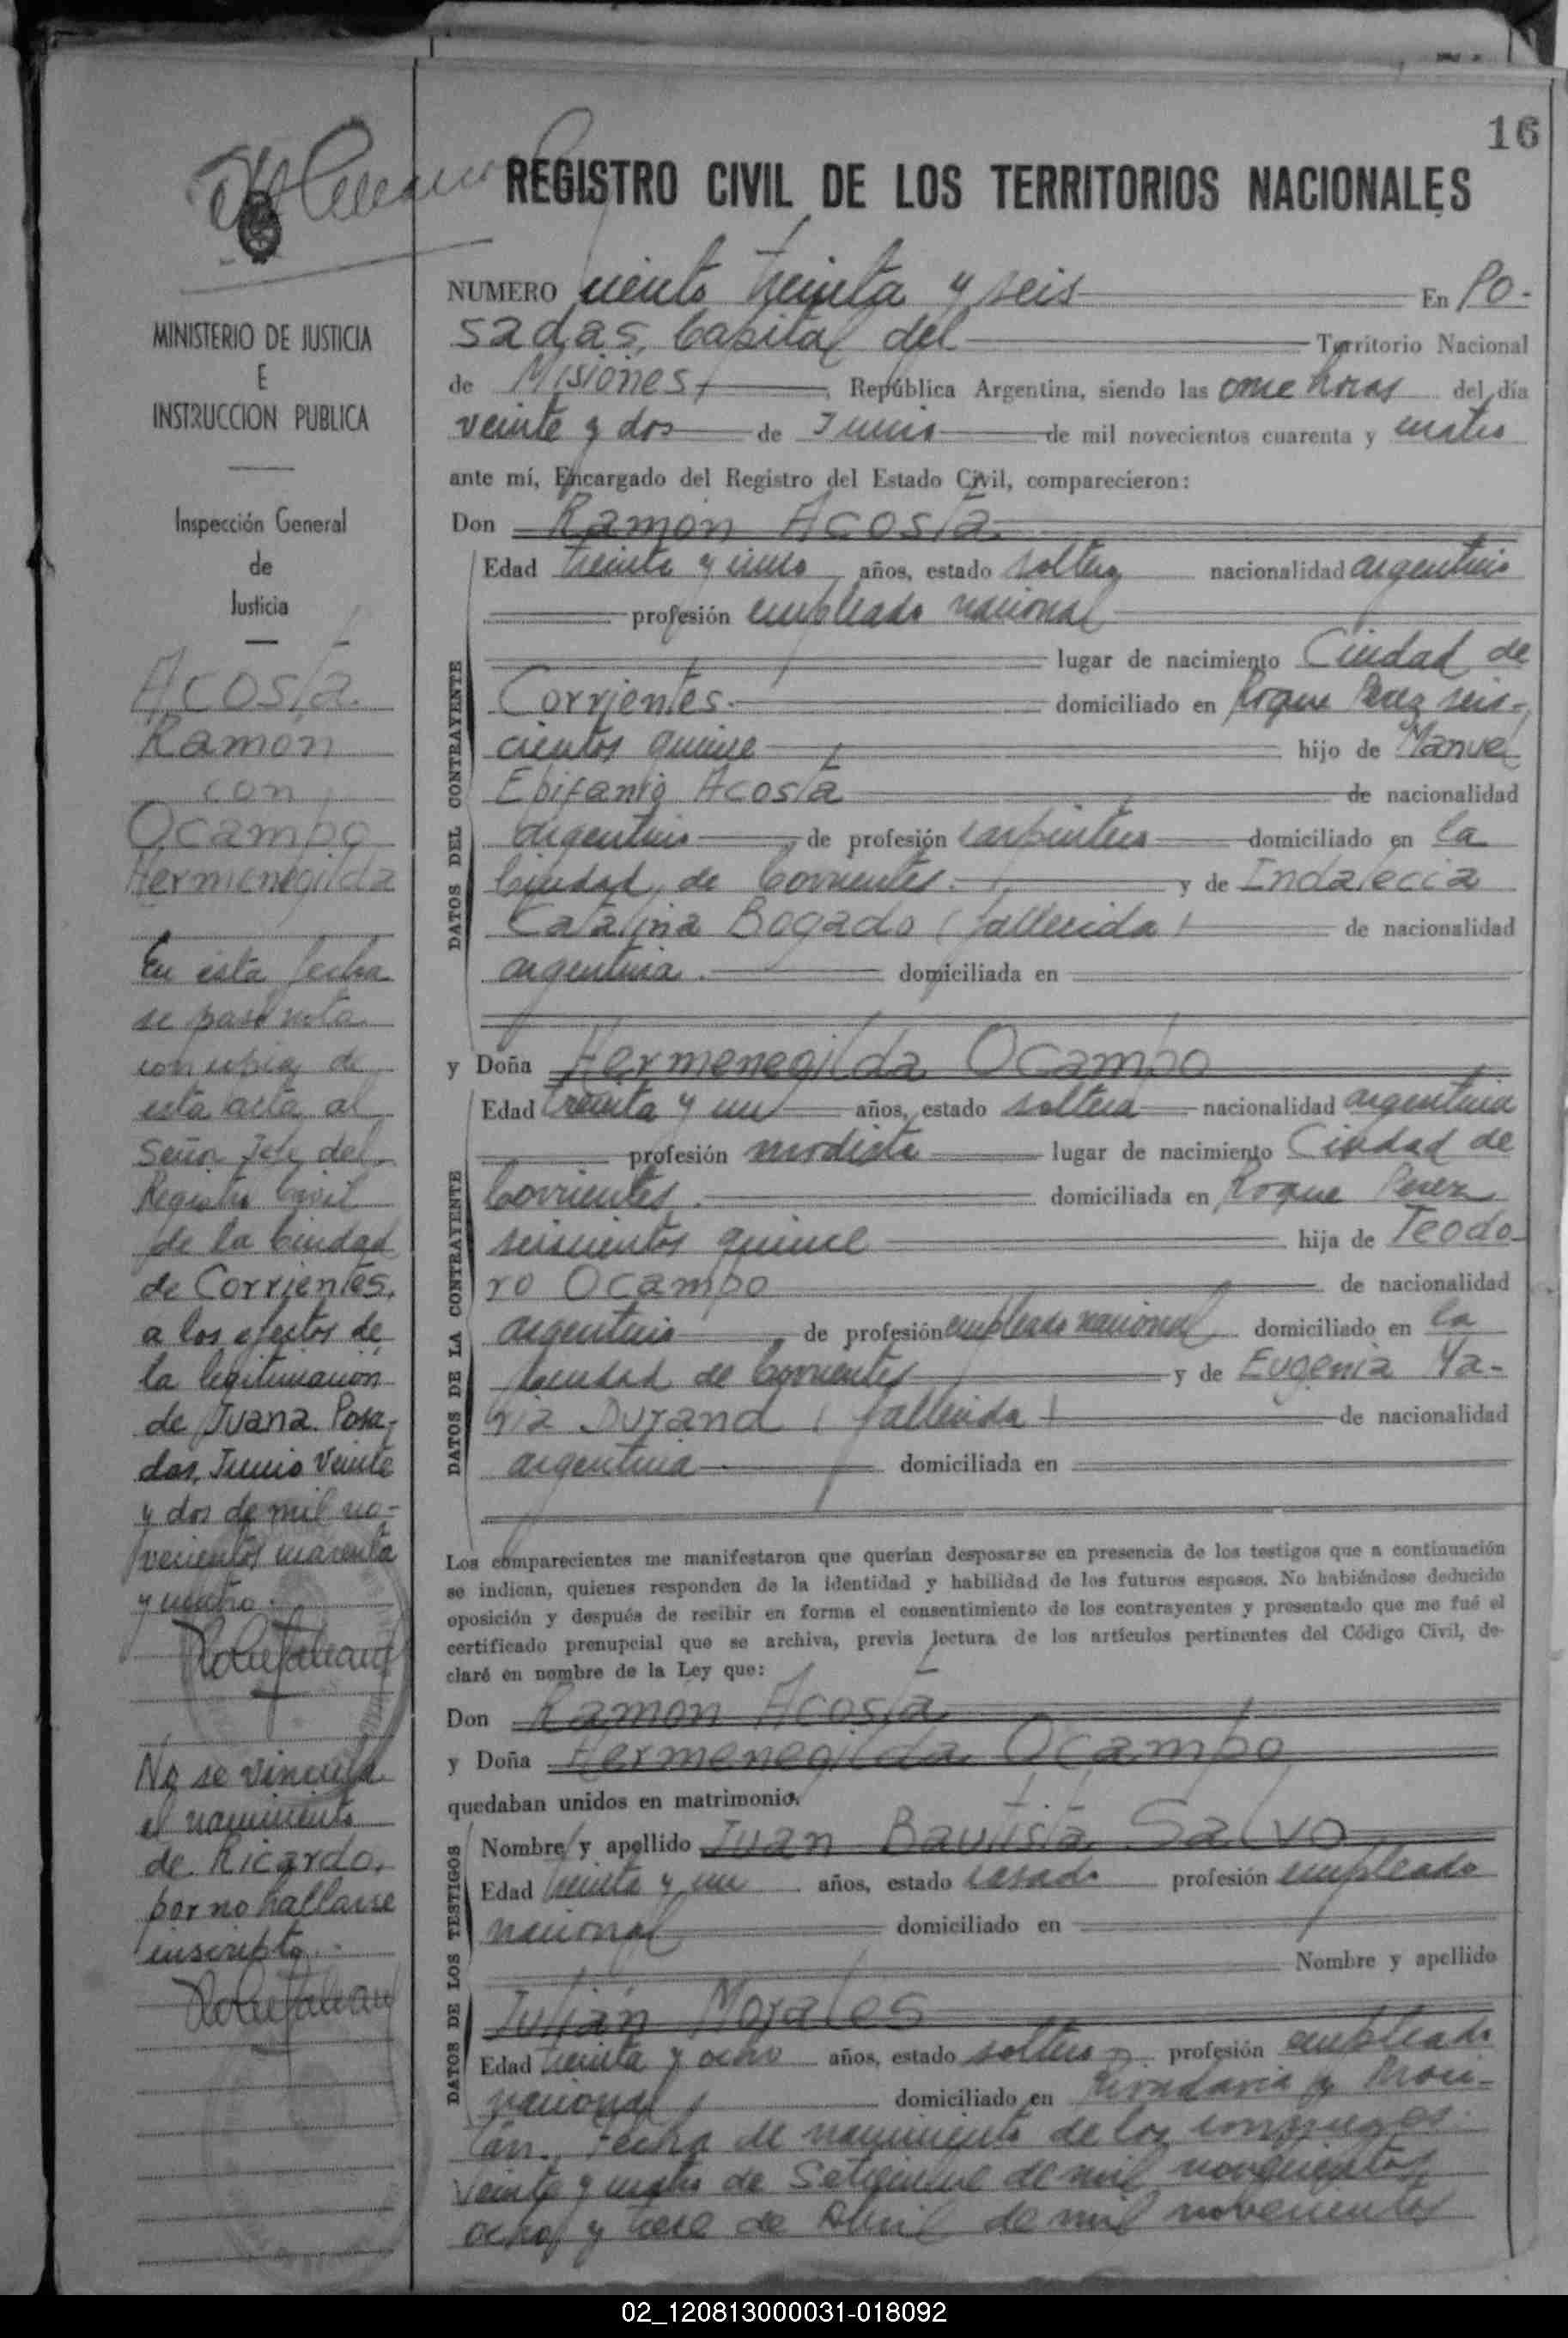 16
REGISTRO CIVIL DE LOS TERRITORIOS NACIONALES
MINISTERIO DE JUSTICIA
E
INSTRUCCION PUBLICA
Inspección General
de
Justicia
Acosta
Ramón
con
Ocampo
Hermenegilda
En esta fecha
se pasó nota
con copia de
esta acta al
Señor Jefe del
Registro Civil
de la Ciudad
de Corrientes,
a los efectos de
la legitimación
de Juana. Posa-
das, Junio Veinte
y dos de mil no-
vecientos cuarenta
y cuatro.
No se vincula
el nacimiento
de Ricardo,
por no hallarse
inscripto.
NUMERO ciento treinta y seis En Po-
sadas, Capital del Territorio Nacional
de Misiones, República Argentina, siendo las once horas del día
veinte y dos de Junio de mil novecientos cuarenta y cuatro
ante mí, Encargado del Registro del Estado Civil, comparecieron:
Don Ramón Acosta
DATOS DEL CONTRAYENTE
Edad treinta y cinco años, estado soltero nacionalidad argentino
profesión empleado nacional
lugar de nacimiento Ciudad de
Corrientes. domiciliado en Roque Perez seis-
cientos quince hijo de Manuel
Epifanio Acosta de nacionalidad
argentino de profesión carpintero domiciliado en la
Ciudad de Corrientes. y de Indalecia
Catalina Bogado (fallecida) de nacionalidad
argentina. domiciliada en
y Doña Hermenegilda Ocampo
DATOS DE LA CONTRAYENTE
Edad treinta y un años, estado soltera nacionalidad argentina
profesión modista lugar de nacimiento Ciudad de
Corrientes. domiciliada en Roque Perez
seiscientos quince hija de Teodo-
ro Ocampo de nacionalidad
argentino de profesión empleado nacional domiciliado en la
ciudad de Corrientes y de Eugenia Ma-
ria Durand (fallecida) de nacionalidad
argentina domiciliada en
Los comparecientes me manifestaron que querían desposarse en presencia de los testigos que a continuación
se indican, quienes responden de la identidad y habilidad de los futuros esposos. No habiéndose deducido
oposición y después de recibir en forma el consentimiento de los contrayentes y presentado que me fué el
certificado prenupcial que se archiva, previa lectura de los artículos pertinentes del Código Civil, de-
claré en nombre de la Ley que:
Don Ramón Acosta
y Doña Hermenegilda Ocampo
quedaban unidos en matrimonio.
DATOS DE LOS TESTIGOS
Nombre y apellido Juan Bautista Salvo
Edad treinta y un años, estado casado profesión empleado
nacional domiciliado en
Nombre y apellido
Julián Morales
Edad treinta y ocho años, estado soltero profesión empleado
nacional domiciliado en Rivadavia y
Fecha de nacimiento de los conyuges.
veinte y cuatro de Setiembre de mil novecientos
ocho y trece de Abril de mil novecientos
02_120813000031-018092